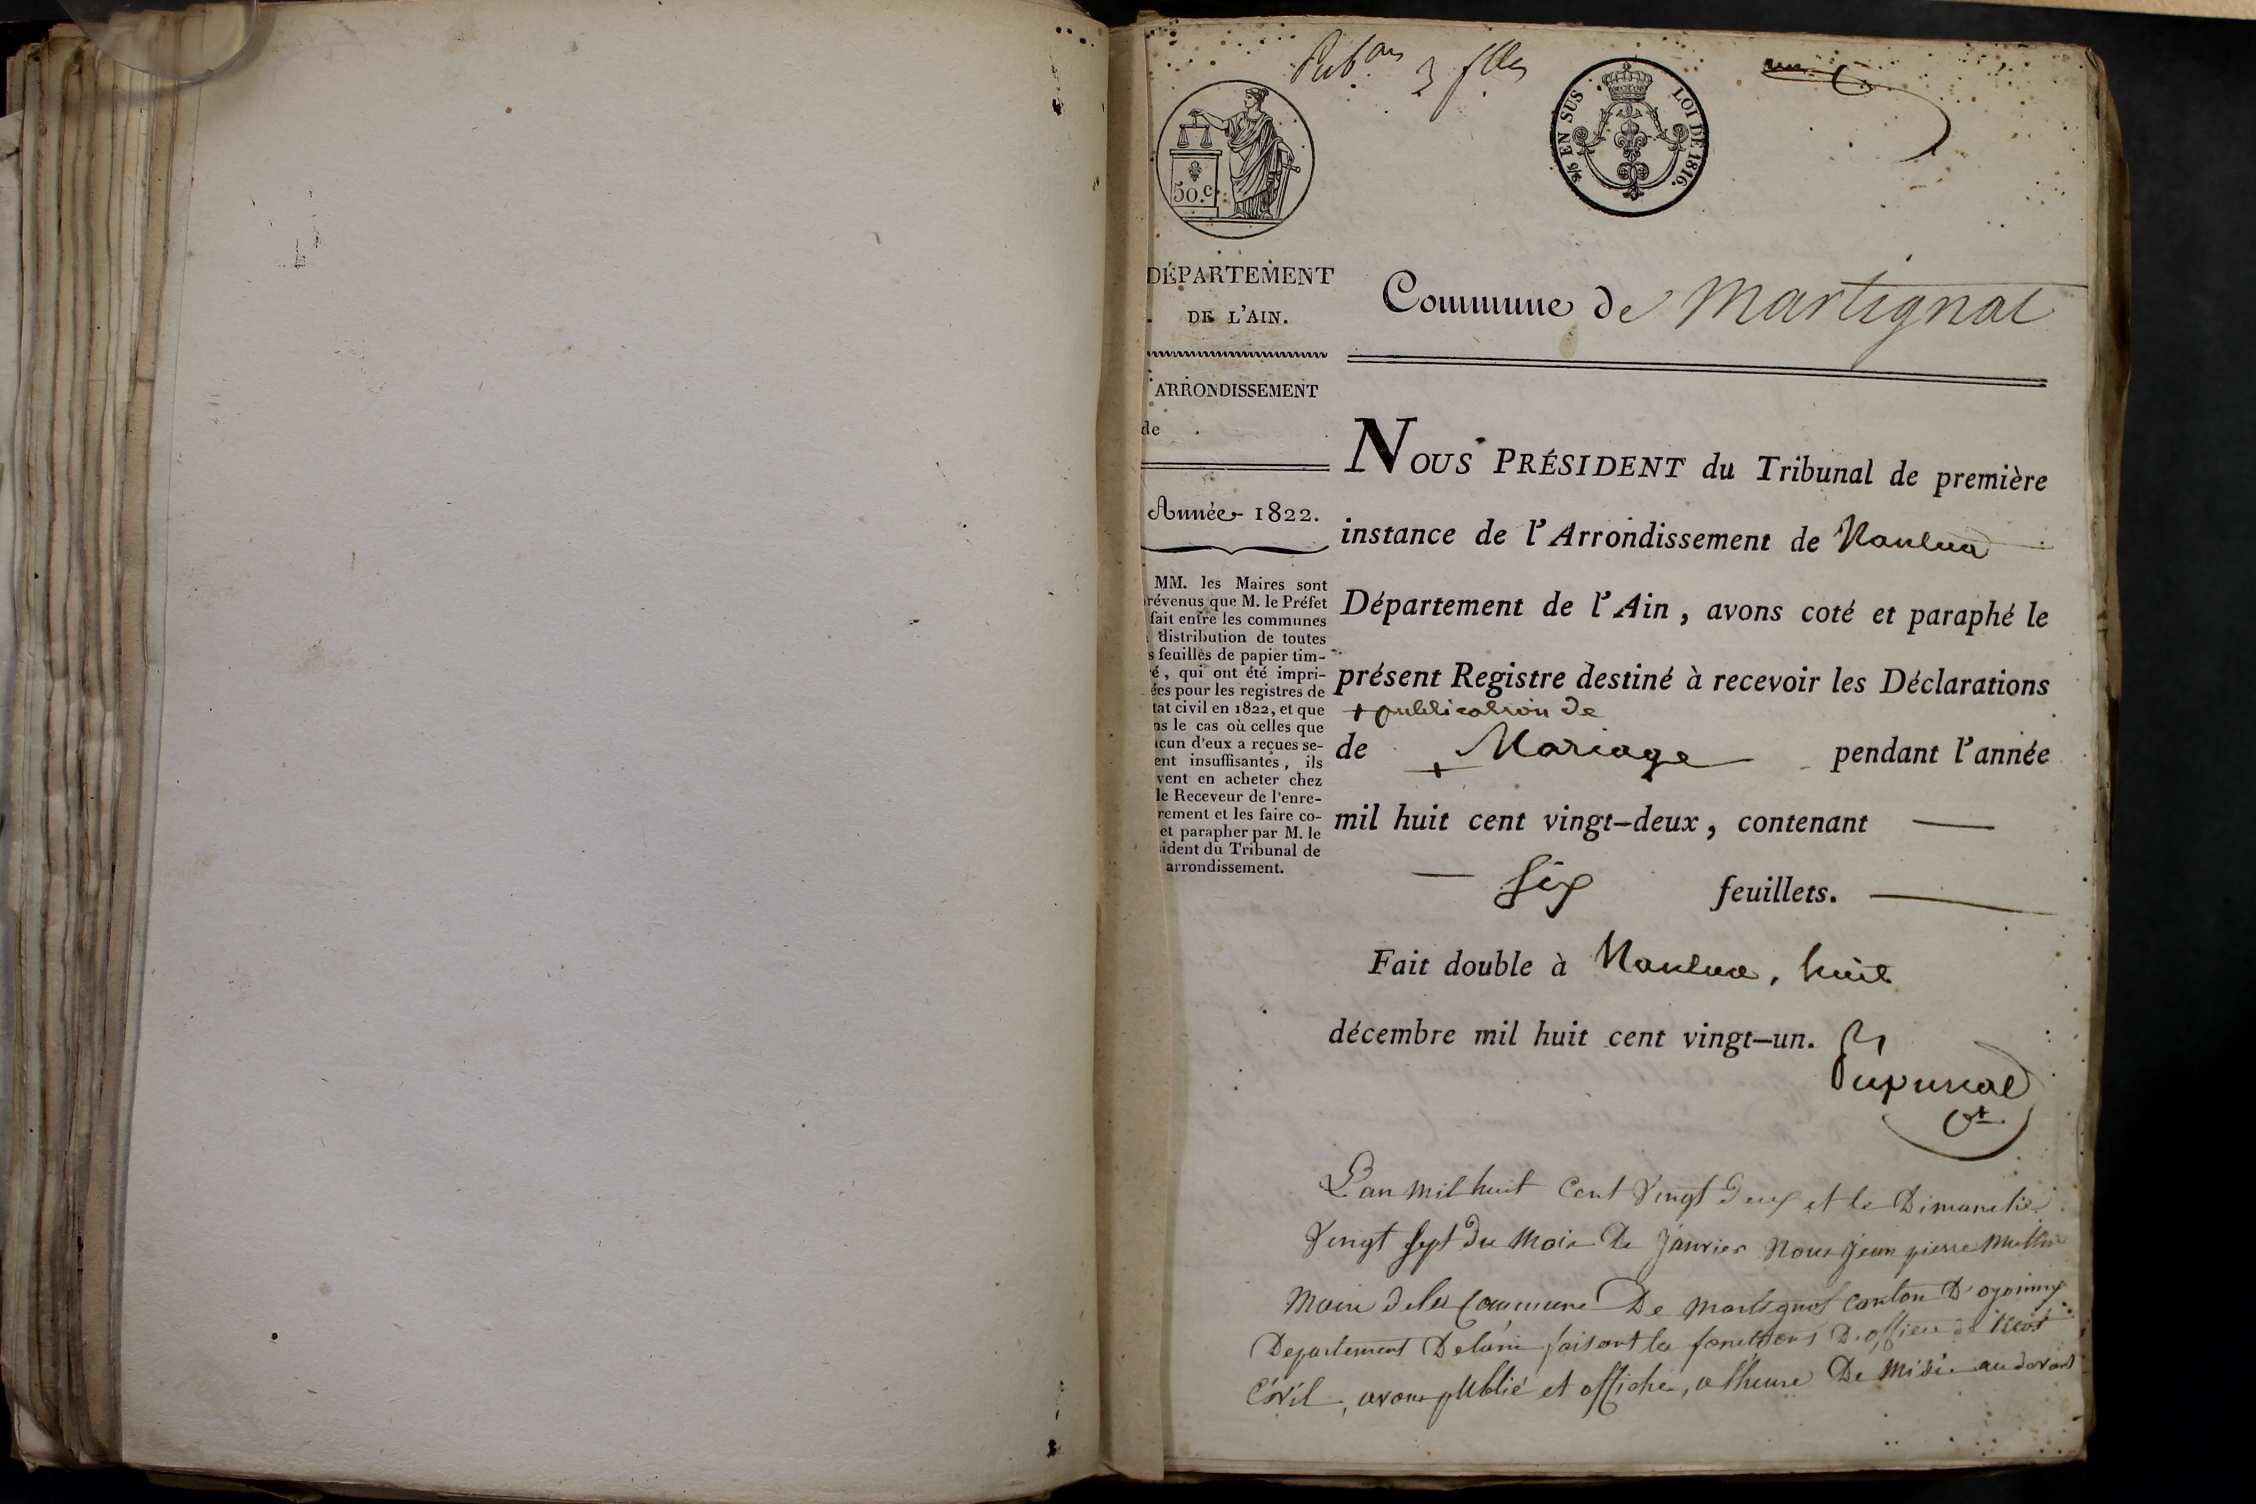 Pub.ons 3 flles
un
50.c
EN SUS LOI DE 1816.
DÉPARTEMENT
DE L'AIN.
Commune de Martignat
ARRONDISSEMENT
de
Année 1822.
NOUS PRÉSIDENT du Tribunal de première
instance de l'Arrondissement de Nantua
Département de l'Ain, avons coté et paraphé le
présent Registre destiné à recevoir les Déclarations
+ publication de
de + Mariage pendant l'année
mil huit cent vingt-deux, contenant
six feuillets.
Fait double à Nantua, huit
décembre mil huit cent vingt-un.
MM. les Maires sont
révenus que M. le Préfet
fait entre les communes
distribution de toutes
s feuilles de papier tim-
é, qui ont été impri-
ées pour les registres de
tat civil en 1822, et que
ns le cas où celles que
acun d'eux a reçues se-
ent insuffisantes, ils
vent en acheter chez
le Receveur de l'enre-
rement et les faire co-
et parapher par M. le
ident du Tribunal de
arrondissement.
L'an mil huit Cent Vingt Deux et le Dimanche
Vingt Sept du Mois de Janvier Nous jean pierre
Maire de la Commune De Martignat Canton D'oyonnax
Departement Delain faisant la fonctions D'officier de l'Etat
Civil, avons publié et affiché, a l'heure De Midi au devant